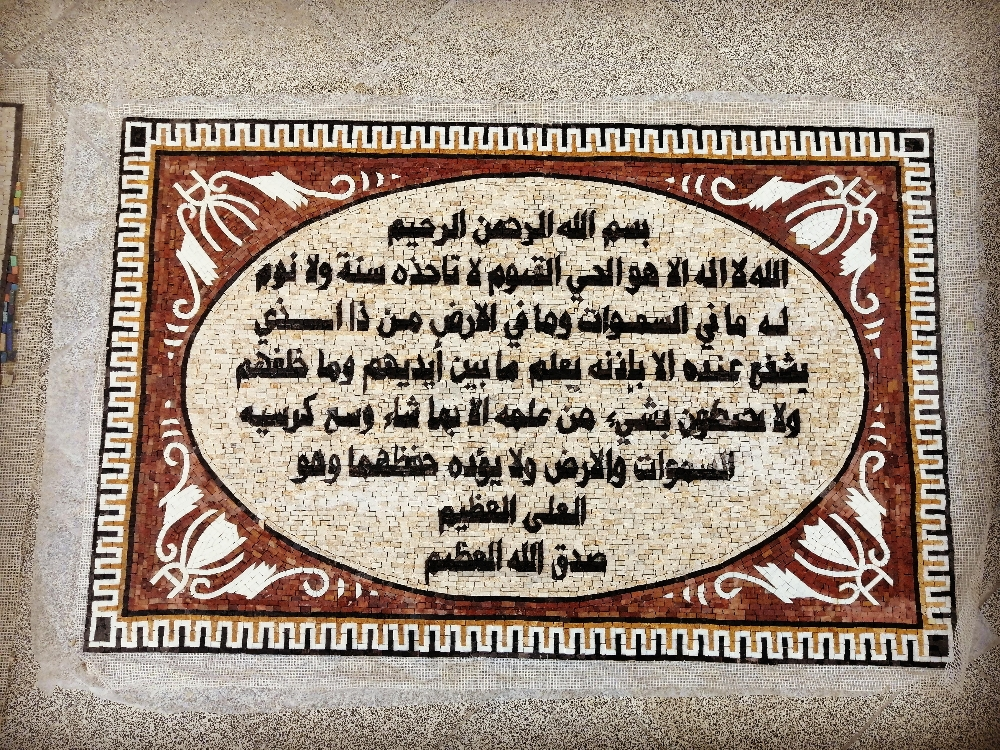 بسم الله الرحمن الرحيم
الله لا اله الا هو الحي القيوم لا تاخذه سنة ولا نوم
له ما في السموات وما في الارض من ذا الـــذي
يشفع عنده الا بإذنه يعلم ما بين أيديهم وما خلفهم
ولا يحيطون بشيء من علمه الا بما شاء وسع كرسيه
السموات والارض ولا يؤده حفظهما وهو
العلي العظيم
صدق الله العظيم